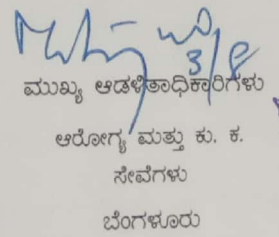 3/8
ಮುಖ್ಯ ಆಡಳಿತಾಧಿಕಾರಿಗಳು
ಆರೋಗ್ಯ ಮತ್ತು ಕು. ಕ.
ಸೇವೆಗಳು
ಬೆಂಗಳೂರು